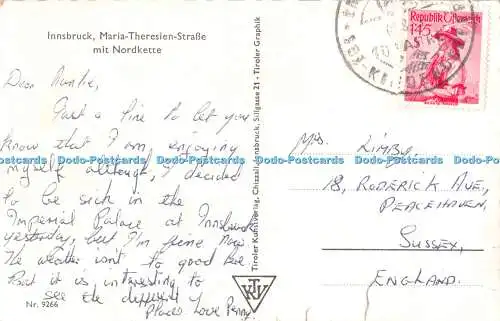 Innsbruck, Maria-Theresien-Straße
mit Nordkette
Dear Auntie,
Just a line to let you
know that I am enjoying
myself although, I decided
to be sick in the
Imperial Palace at Innsbruck
yesterday, but I'm fine now.
The weather isn't to good here
But it is interesting to
see the different
places Love Penny.
Nr. 9266
Tiroler Kunstverlag, Chizzali, Innsbruck, Sillgasse 21 - Tiroler Graphik
TKV
Republik Österreich
1.45
Mrs. Kimby,
18, Roderick Ave,
Peacehaven,
Sussex,
England.
Dodo-Postcards Dodo-Postcards Dodo-Postcards Dodo-Postcards Dodo-Postcards Dodo-Postcards